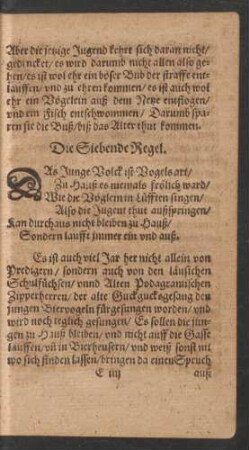 Aber die jetzige Jugend kehrt sich daran nicht/
gedencket/ es wird darumb nicht allen also ge-
hen/ es ist wol ehr ein böser Bub der straffe ent-
lauffen/ und zu ehren kommen/ es ist auch wol
ehr ein Vögelein auß dem Netze entflogen/
und ein Fisch entschwommen/ Darumb spa-
ren sie die Buß/ biß das Alter thut kommen.
Die Siebende Regel.
DAs Junge Volck ist Vogels art/
Zu Hauß es niemals frölich ward/
Wie die Vöglein in Lüfften singen/
Also die Jugent thut außspringen/
Kan durchaus nicht bleiben zu Hauß/
Sondern laufft immer ein und auß.
Es ist auch viel Jar her nicht allein von
Predigern/ sondern auch von den läusichen
Schulfüchsen/ unnd Alten Podagramischen
Zipperherren/ der alte Guckgucksgesang den
jungen Biervogeln fürgesungen worden/ und
wird noch teglich gesungen/ Es sollen die jun-
gen zu Hauß bleiben/ und nicht auff die Gasse
lauffen/ uñ in Bierheusern/ und weiß sonst nit
wo sich finden lassen/ bringen da einen Spruch
C iiij auß